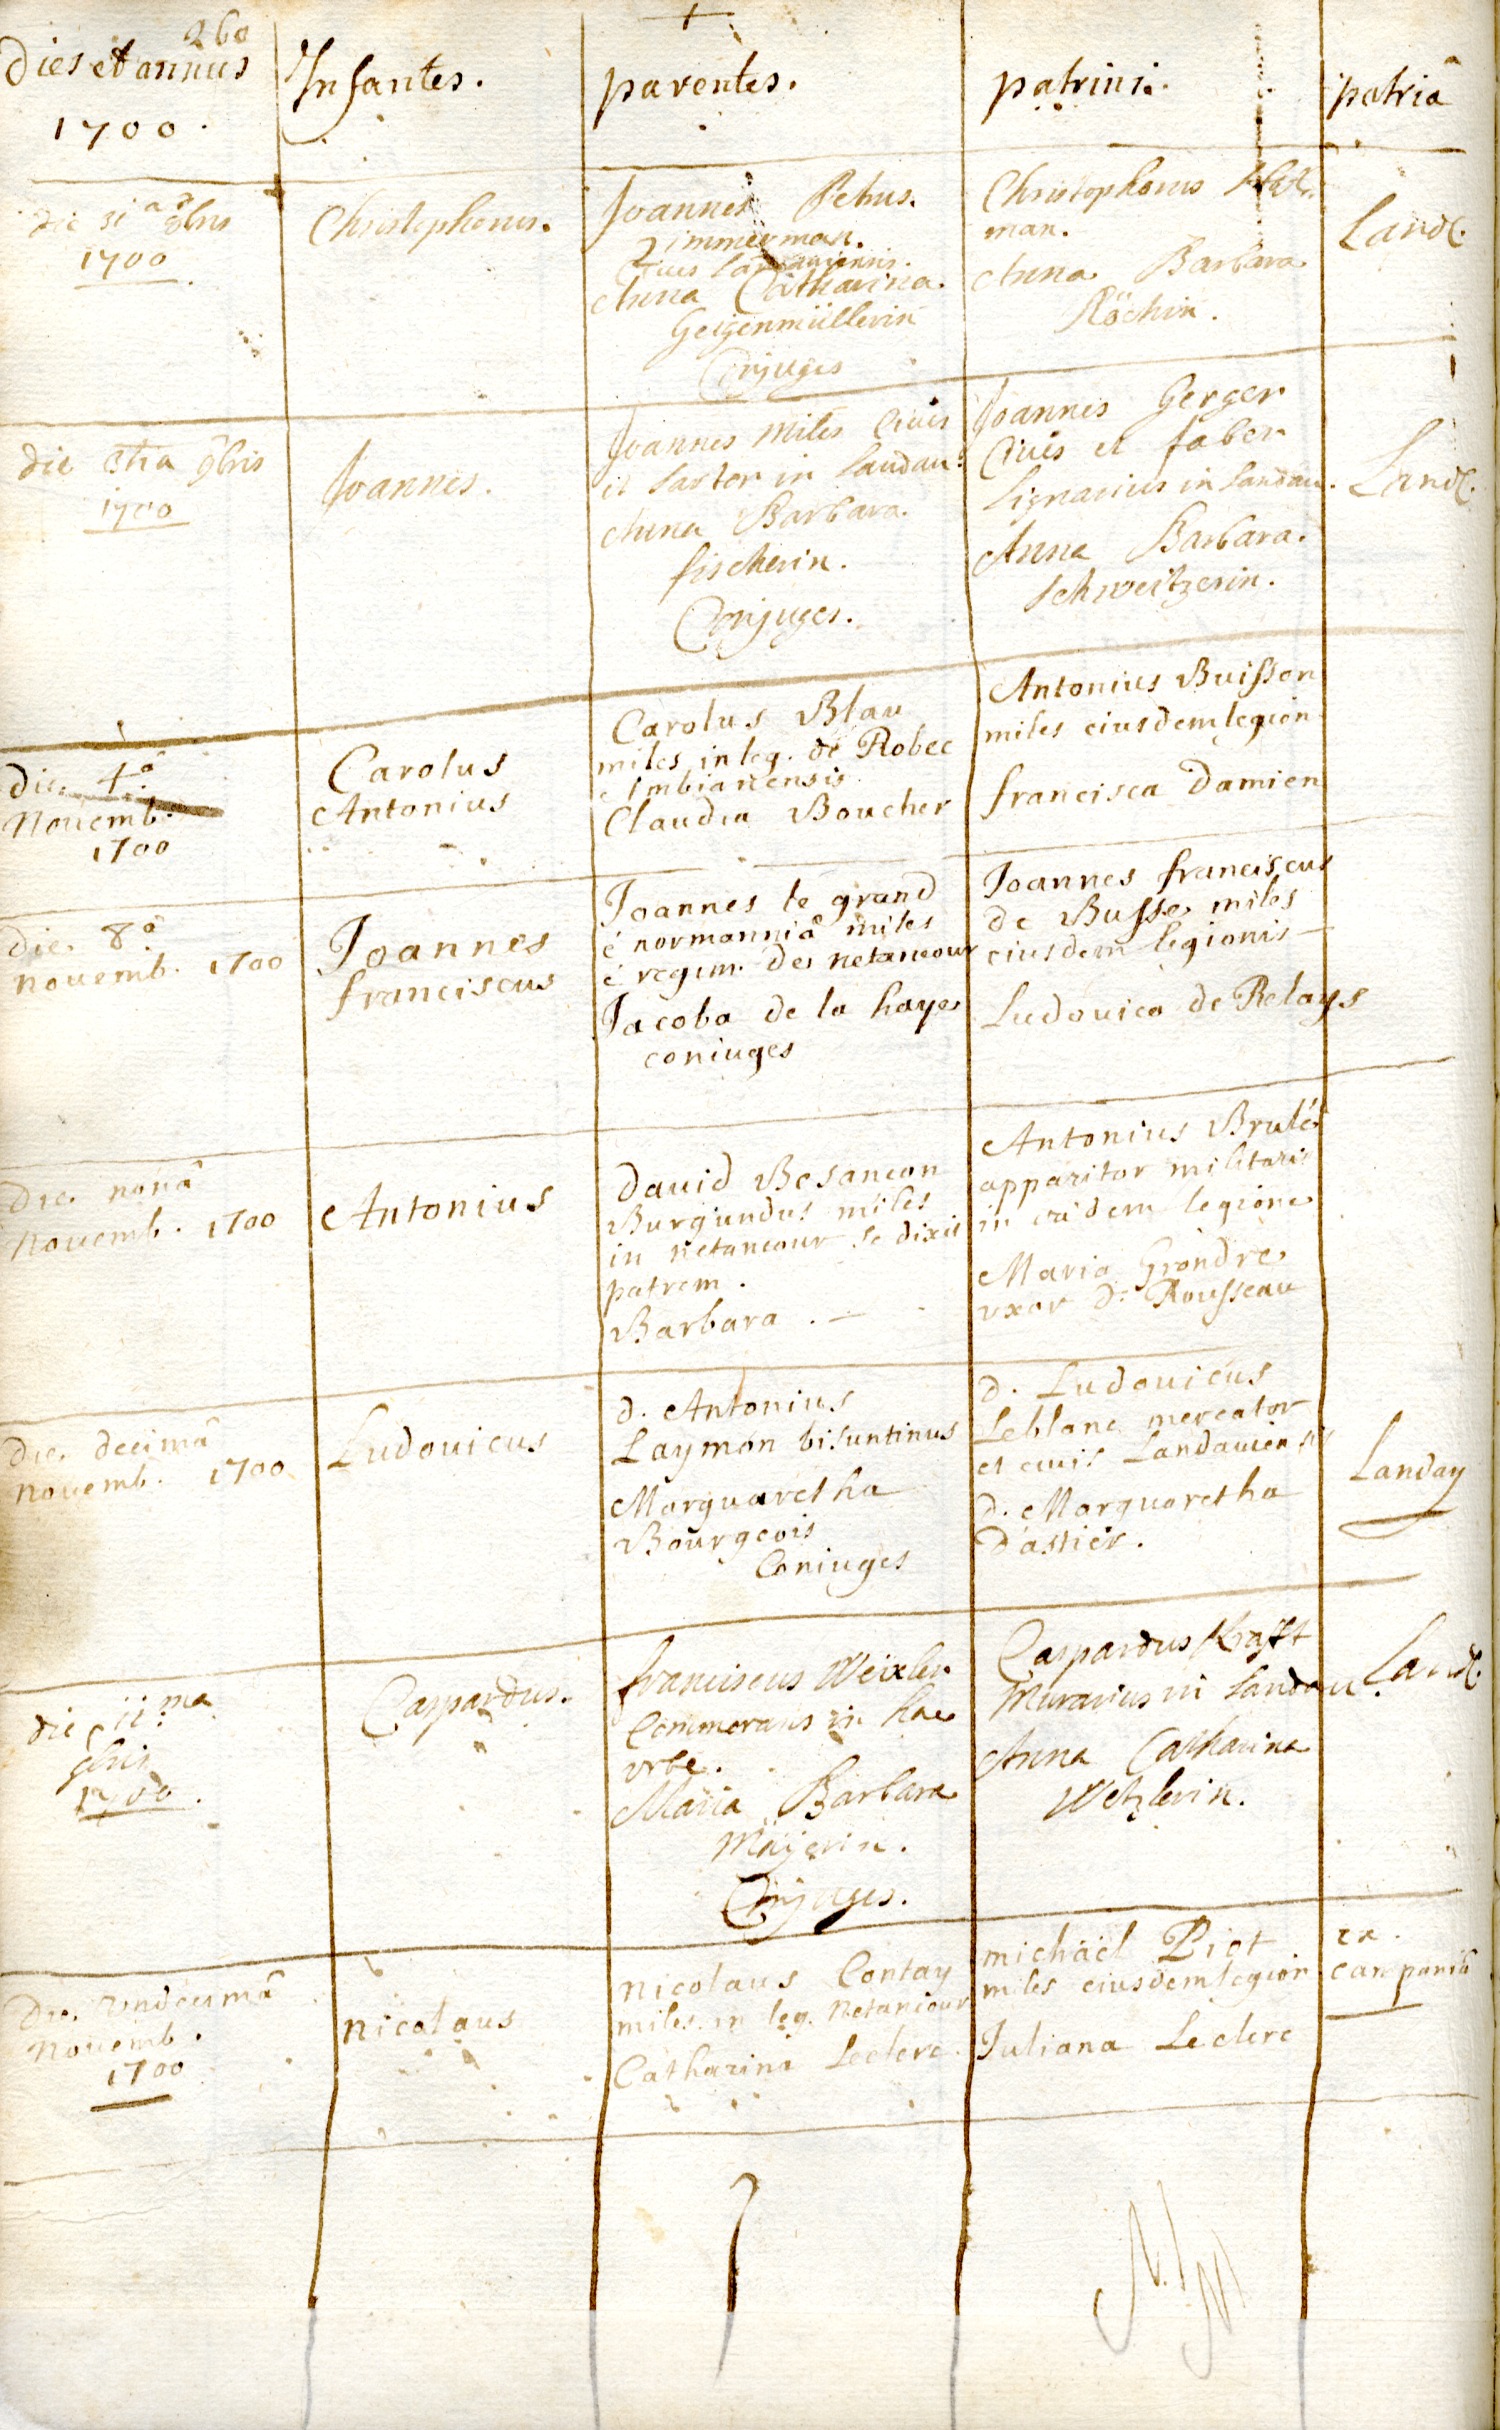 260
Dies et annus
1700.
Infantes.
parentes.
patrini.
patriâ
die 31a 8bris
1700
Christophorus.
Joannes Petrus.
Zimmerman.
Ciuis Landauiensis.
Anna Catharina.
Geigenmüllerin
Conjuges
Christophorus
man.
Anna Barbara
Köchin.
Land.
die 9bris
1700
Joannes.
Joannes Miles Ciuis
et Sartor in Landau:
Anna Barbara.
fischerin.
Conjuges.
Joannes Gerger
Ciuis et faber
lignarius in Landau.
Anna Barbara.
Schweitzerin.
Land.
die
Nouemb.
1700
Carolus
Antonius
Carolus Blau
miles in leg. de Robec
Ambianensis
Claudia Boucher
Antonius Buisson
miles eiusdem legion
francisca Damien
die 8â
nouemb. 1700
Joannes
franciscus
Joannes le grand
é normanniâ miles
é regim. de netancour
Jacoba de la haye
coniuges
Joannes franciscus
de Busse miles
eiusdem legionis
Ludouica de Relays
Die nonâ
nouemb. 1700
Antonius
David Besancon
Burgundus miles
in netancour se dixit
patrem.
Barbara . —
Antonius Brulé
apparitor militaris
in eâdem legione
Maria Grondre
vxor d. Rousseau
Die decimâ
nouemb. 1700
Ludouicus
d. Antonius
Laymon bisuntinus
Marguaretha
Bourgeois
Coniuges
d. Ludouicus
Leblanc mercator
et ciuis Landauiensis
d. Marguaretha
d'astier.
Landau
die 11.ma
9bris
1700.
Caspardus.
franciscus Weixler
Commorans in hac
vrbe.
Maria Barbara
Mäyerin.
Conjuges.
Caspardus Krafft
Murarius in Landau
Anna Catharina
Wetzlerin.
Land.
Die Vndecimâ
Nouemb.
1700
nicolaus
nicolaus Contay
miles in leg. Netancour
Catharina Leclerc.
michäel Piot
miles eiusdem legion
Juliana Leclerc
ex.
campaniâ